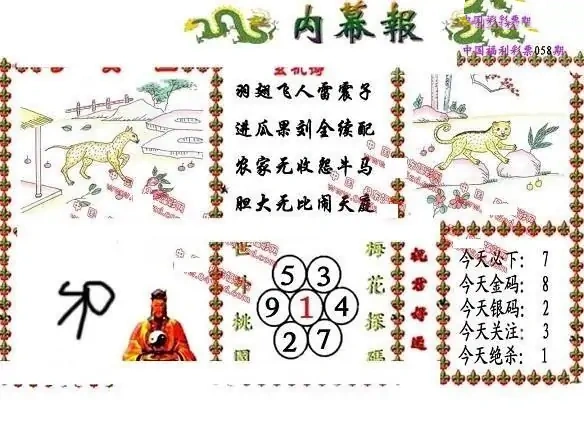 内幕報
中国福利彩票058期
玄机诗
羽翅飞人雷震子
进瓜果刘全续配
农家无收怨牛马
胆大无比闹天庭
世外桃園
5 3
9 1 4
2 7
梅花探碼
祝君好运
今天必下: 7
今天金码: 8
今天银码: 2
今天关注: 3
今天绝杀: 1